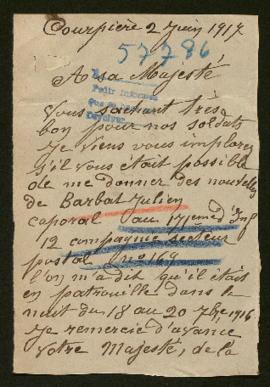 Courpière 2 Juin 1917
57786
A Sa Majesté
Pedir Informes
Vous sachant très
bon pour nos soldats
Je viens vous implorer
s'il vous était possible
de me donner des nouvelles
de Barbat Julien
caporal au 17eme d Inf
12 compagnie secteur
postal No 169
l'on m'a dit qu'il était
en patrouille dans la
nuit du 18 au 20 7bre 1916
Je remercie d'avance
votre Majesté, de la